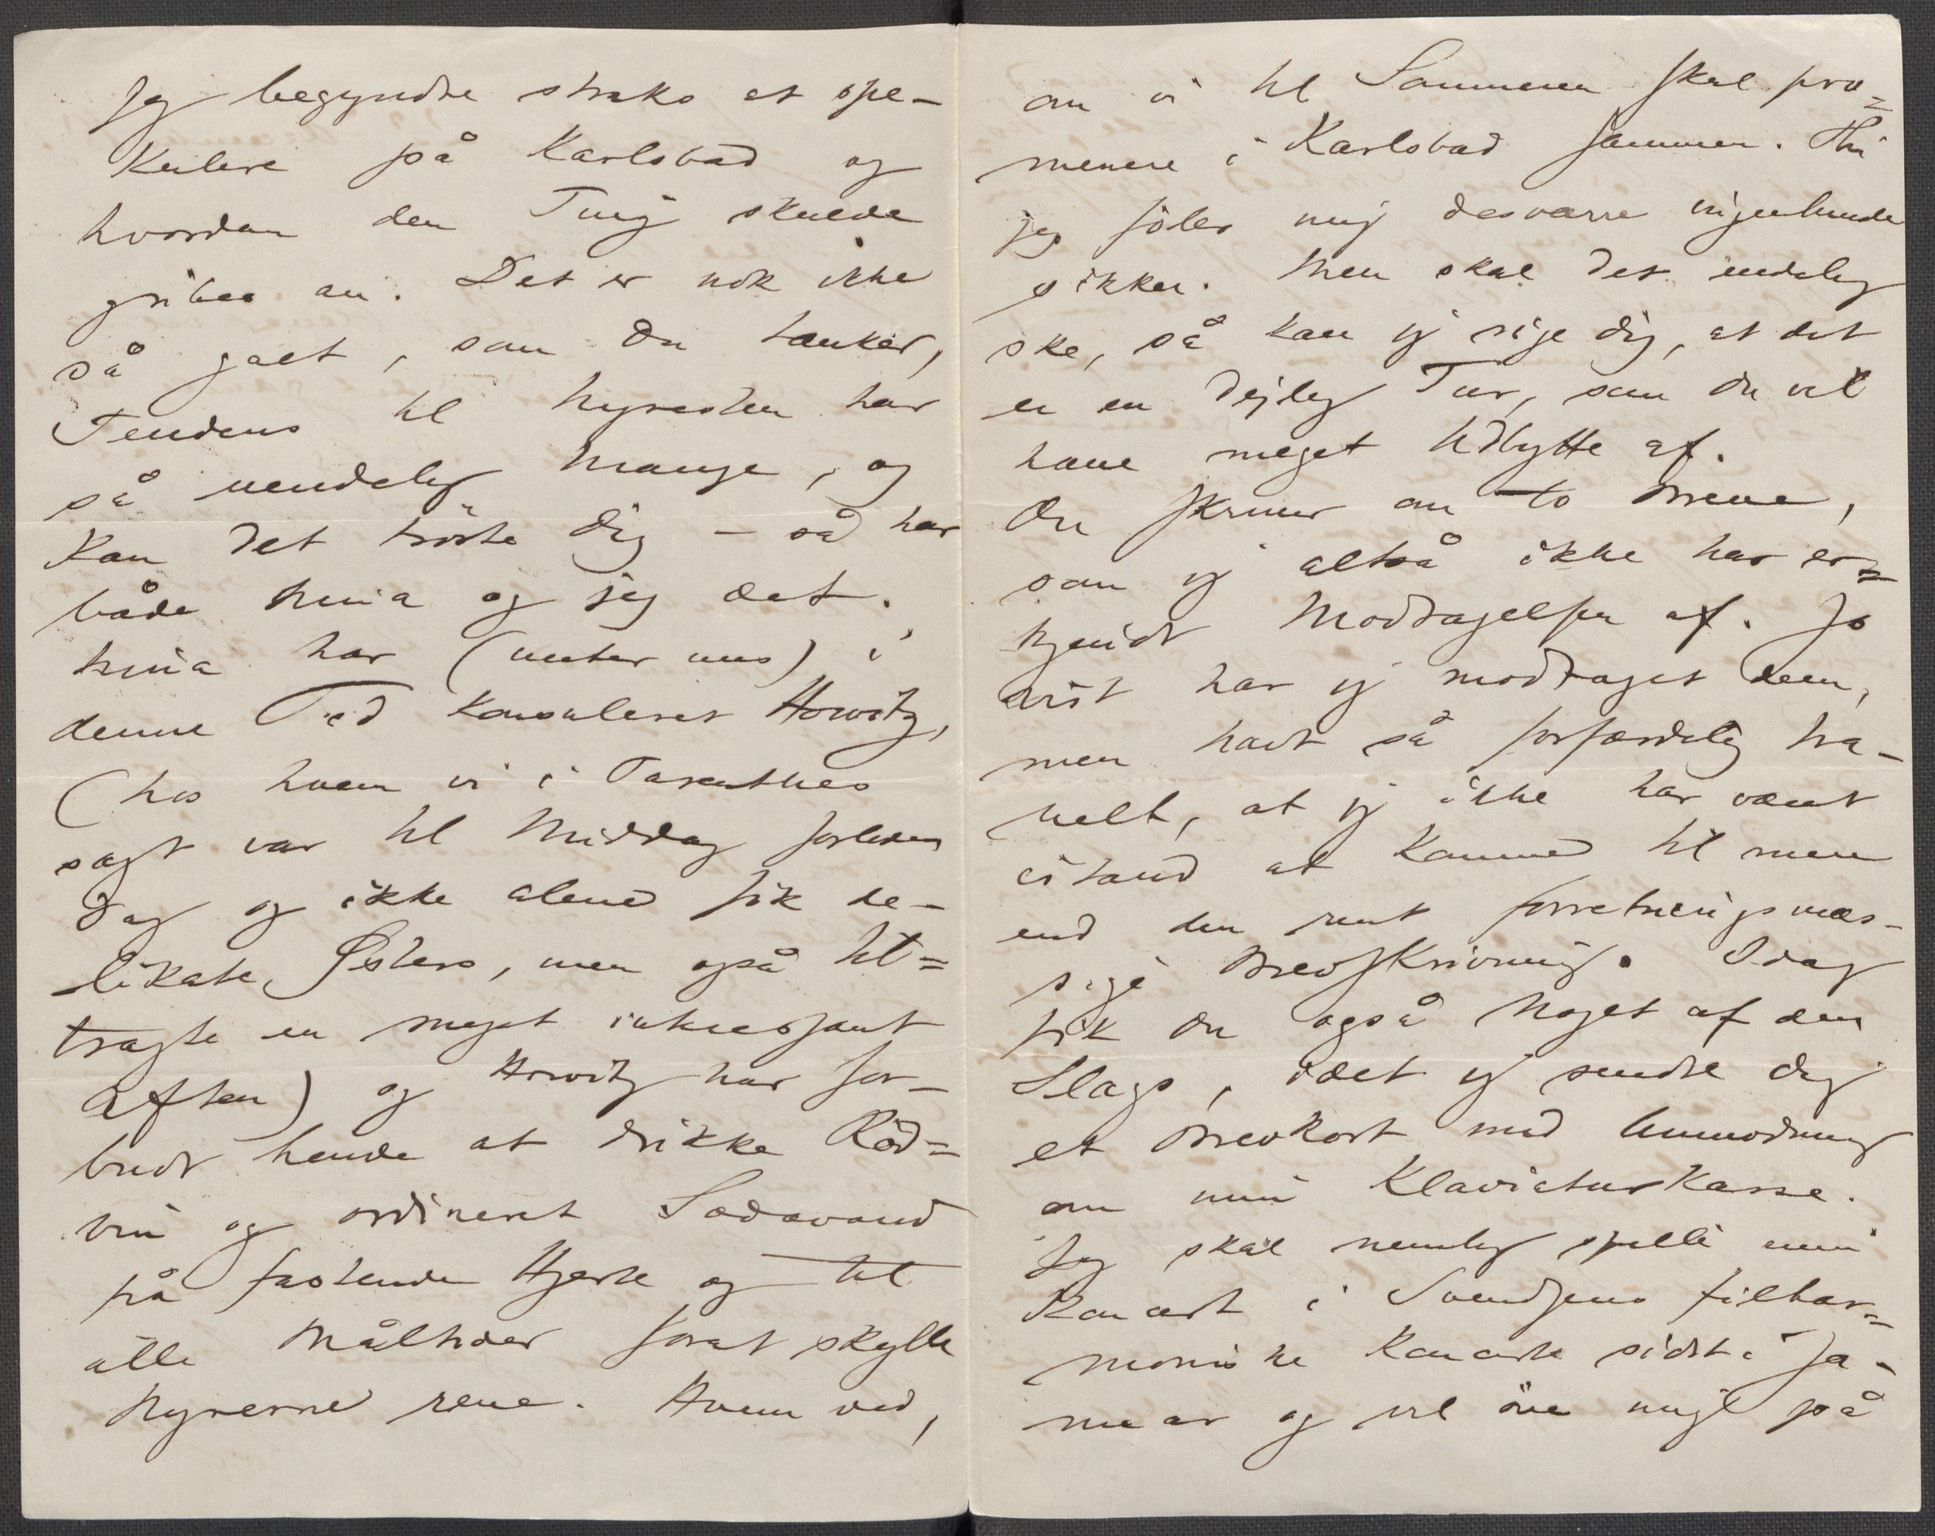 Jeg begyndte straks at spe-
kulere på Karlsbad og
hvordan den Ting skulde
gribes an. Det er nok ikke
så galt, som Du tænker,
Tendens til Nyresten har
så uendelig Mange, og
kan det trøste Dig – så har
både Nina og jeg det.
Nina har (unter uns) i
denne Tid konsuleret Howitz,
(hos hvem vi i Parenthes
sagt var til Middag forleden
Dag og ikke alene fik de-
likate Østers, men også til=
bragte en meget interessant
Aften) og Howitz har for-
budt hende at drikke Röd=
vin og ordineret Sodavand
på fastende Hjerte og til
alle Måltider forat skylle
Nyrerne rene. Hvem ved,
om vi til Sommeren skal pro=
menere i Karlsbad sammen. Thi
jeg föler mig desværre ingenlunde
sikker. Men skal det endelig
ske, så kan jeg sige Dig, at det
er en dejlig Tur, som Du vil
have meget Udbytte af.
Du skriver om to Breve,
som jeg altså ikke har er=
kjendt Modtagelsen af. Jo
vist har jeg modtaget dem,
men havt så forfærdelig tra-
velt, at jeg ikke har været
istand at komme til mere
end den rent forretningsmæs-
sige Brevskrivning. Idag
fik Du også Noget af den
Slags, idet jeg sendte Dig
et Brevkort med Anmodning
om min Klaviaturkasse.
Jeg skal nemlig spille min
Koncert i Svendsens filhar=
moniske Koncerter sidst i Ja-
nuar og vil öve mig på